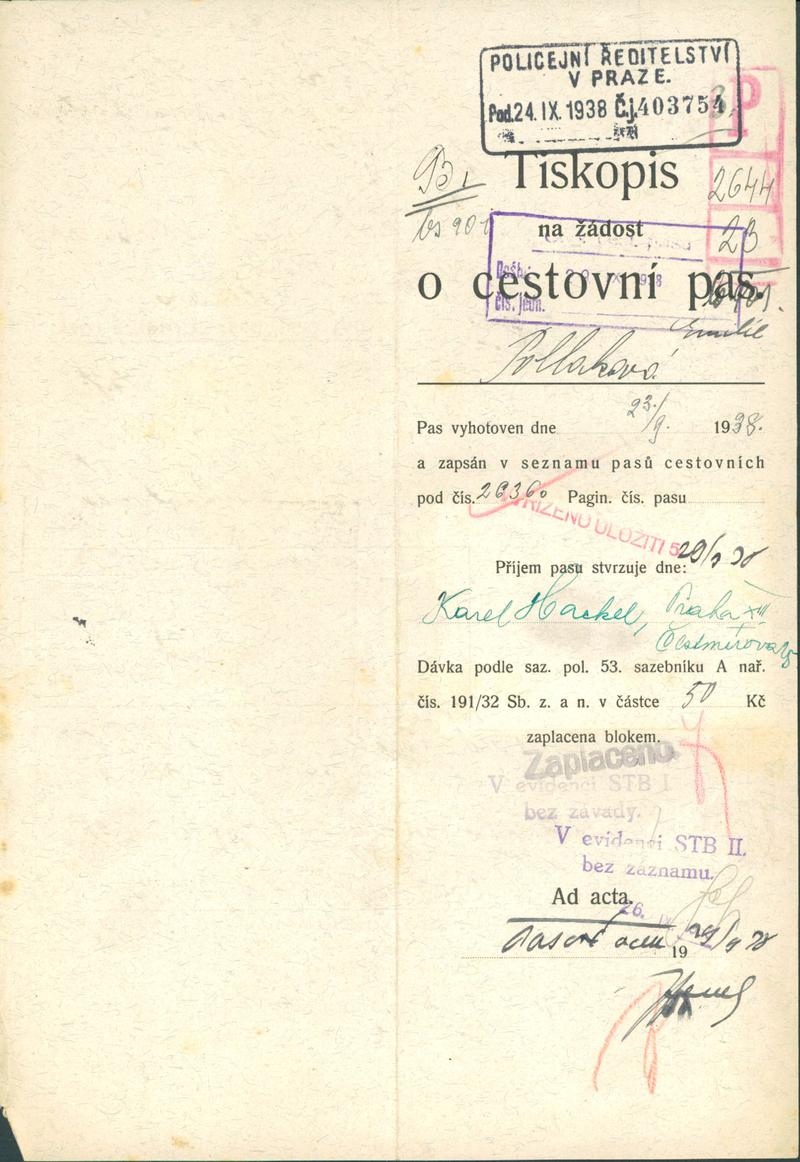 POLICEJNÍ ŘEDITELSTVÍ
V PRAZE.
Pod. 24. IX. 1938 Č.j. 403754
P
B1
Tiskopis
2644
23
na žádost
Došlo
čís. jedn.
o cestovní pas.
Emilie
Pollaková
Pas vyhotoven dne 23/9. 1938.
a zapsán v seznamu pasů cestovních
pod čís. 26360 Pagin. čís. pasu
ULOŽITI
Příjem pasu stvrzuje dne: 29/9 38
Karel Hackel, Praha XIII
Dávka podle saz. pol. 53. sazebníku A nař.
čís. 191/32 Sb. z. a n. v částce 50 Kč
zaplacena blokem.
Zaplaceno.
V evidenci STB I
bez závady.
V evidenci STB II.
bez záznamu.
Ad acta.
26.
19 29/9 38